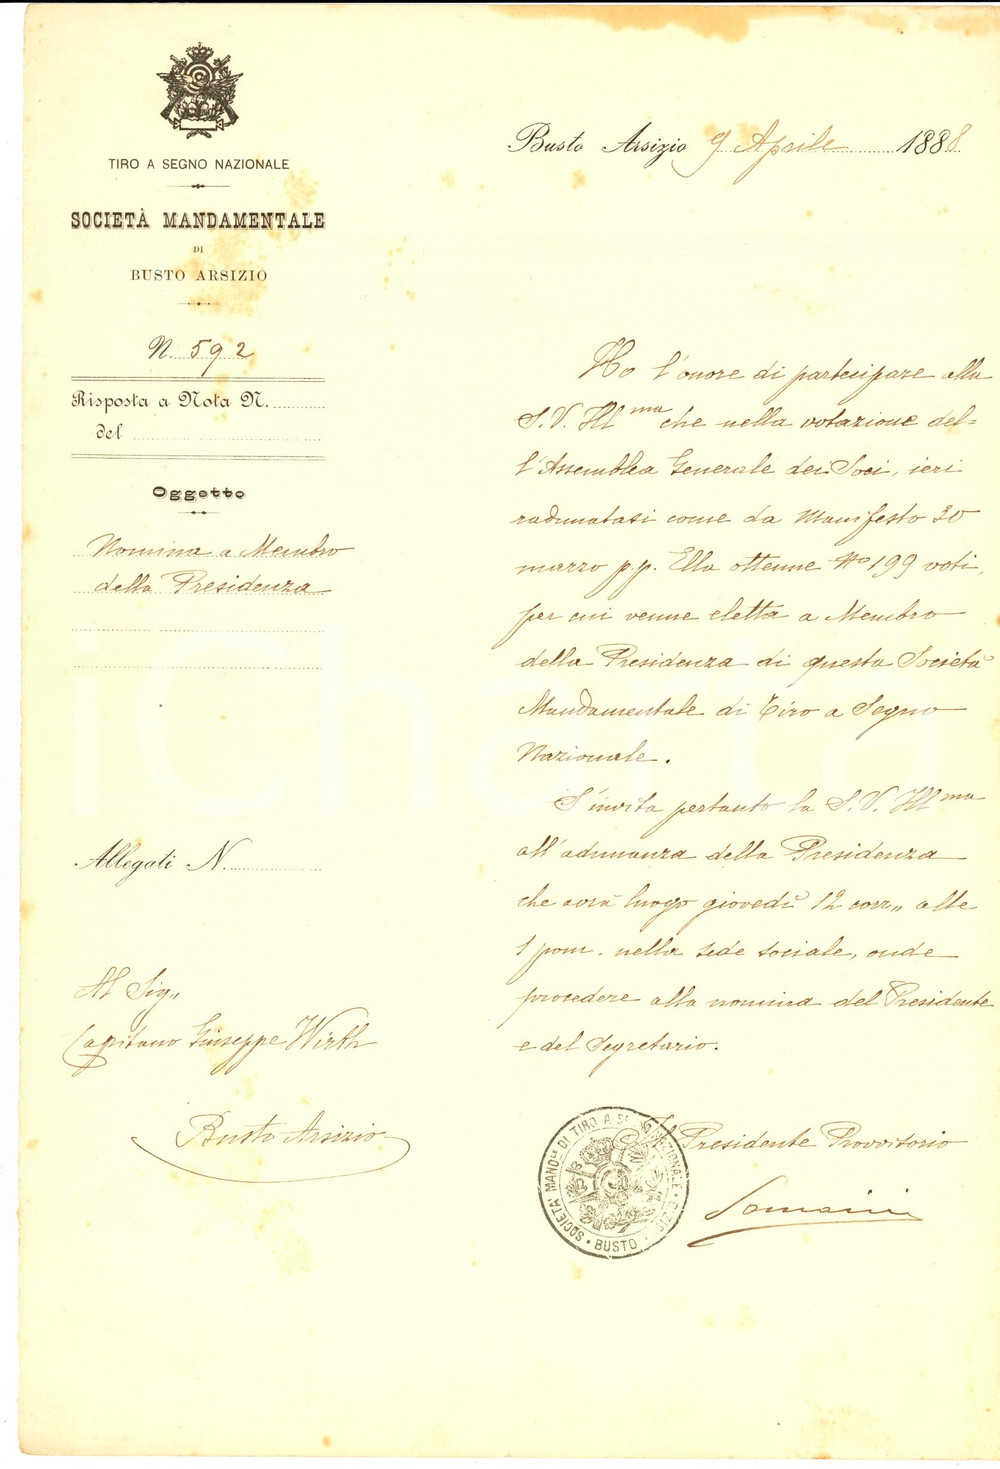 TIRO A SEGNO NAZIONALE
SOCIETÀ MANDAMENTALE
DI
BUSTO ARSIZIO
N. 592
Risposta a Nota N.
del
Oggetto
Nomina a Membro
della Presidenza
Allegati N.
Al Sig.,
Capitano Giuseppe Wirth
Busto Arsizio
Busto Arsizio 9 Aprile 1888
Ho l'onore di partecipare alla
S. V. Ill ma che nella votazione del=
l'Assemblea Generale dei Soci, ieri
radunatasi come da Manifesto 30
marzo p.p. Ella ottenne No 199 voti,
per cui venne eletta a Membro
della Presidenza di questa Società
Mandamentale di Tiro a Segno
Nazionale.
S'invita pertanto la S. V. Ill ma
all'adunanza della Presidenza
che avrà luogo giovedì 12 corr,, alle
1 pom. nella sede sociale, onde
procedere alla nomina del Presidente
e del Segretario.
Il Presidente Provvisorio
Somaini
SOCIETA' MAND.le DI TIRO A SEGNO NAZIONALE
BUSTO
iCharta